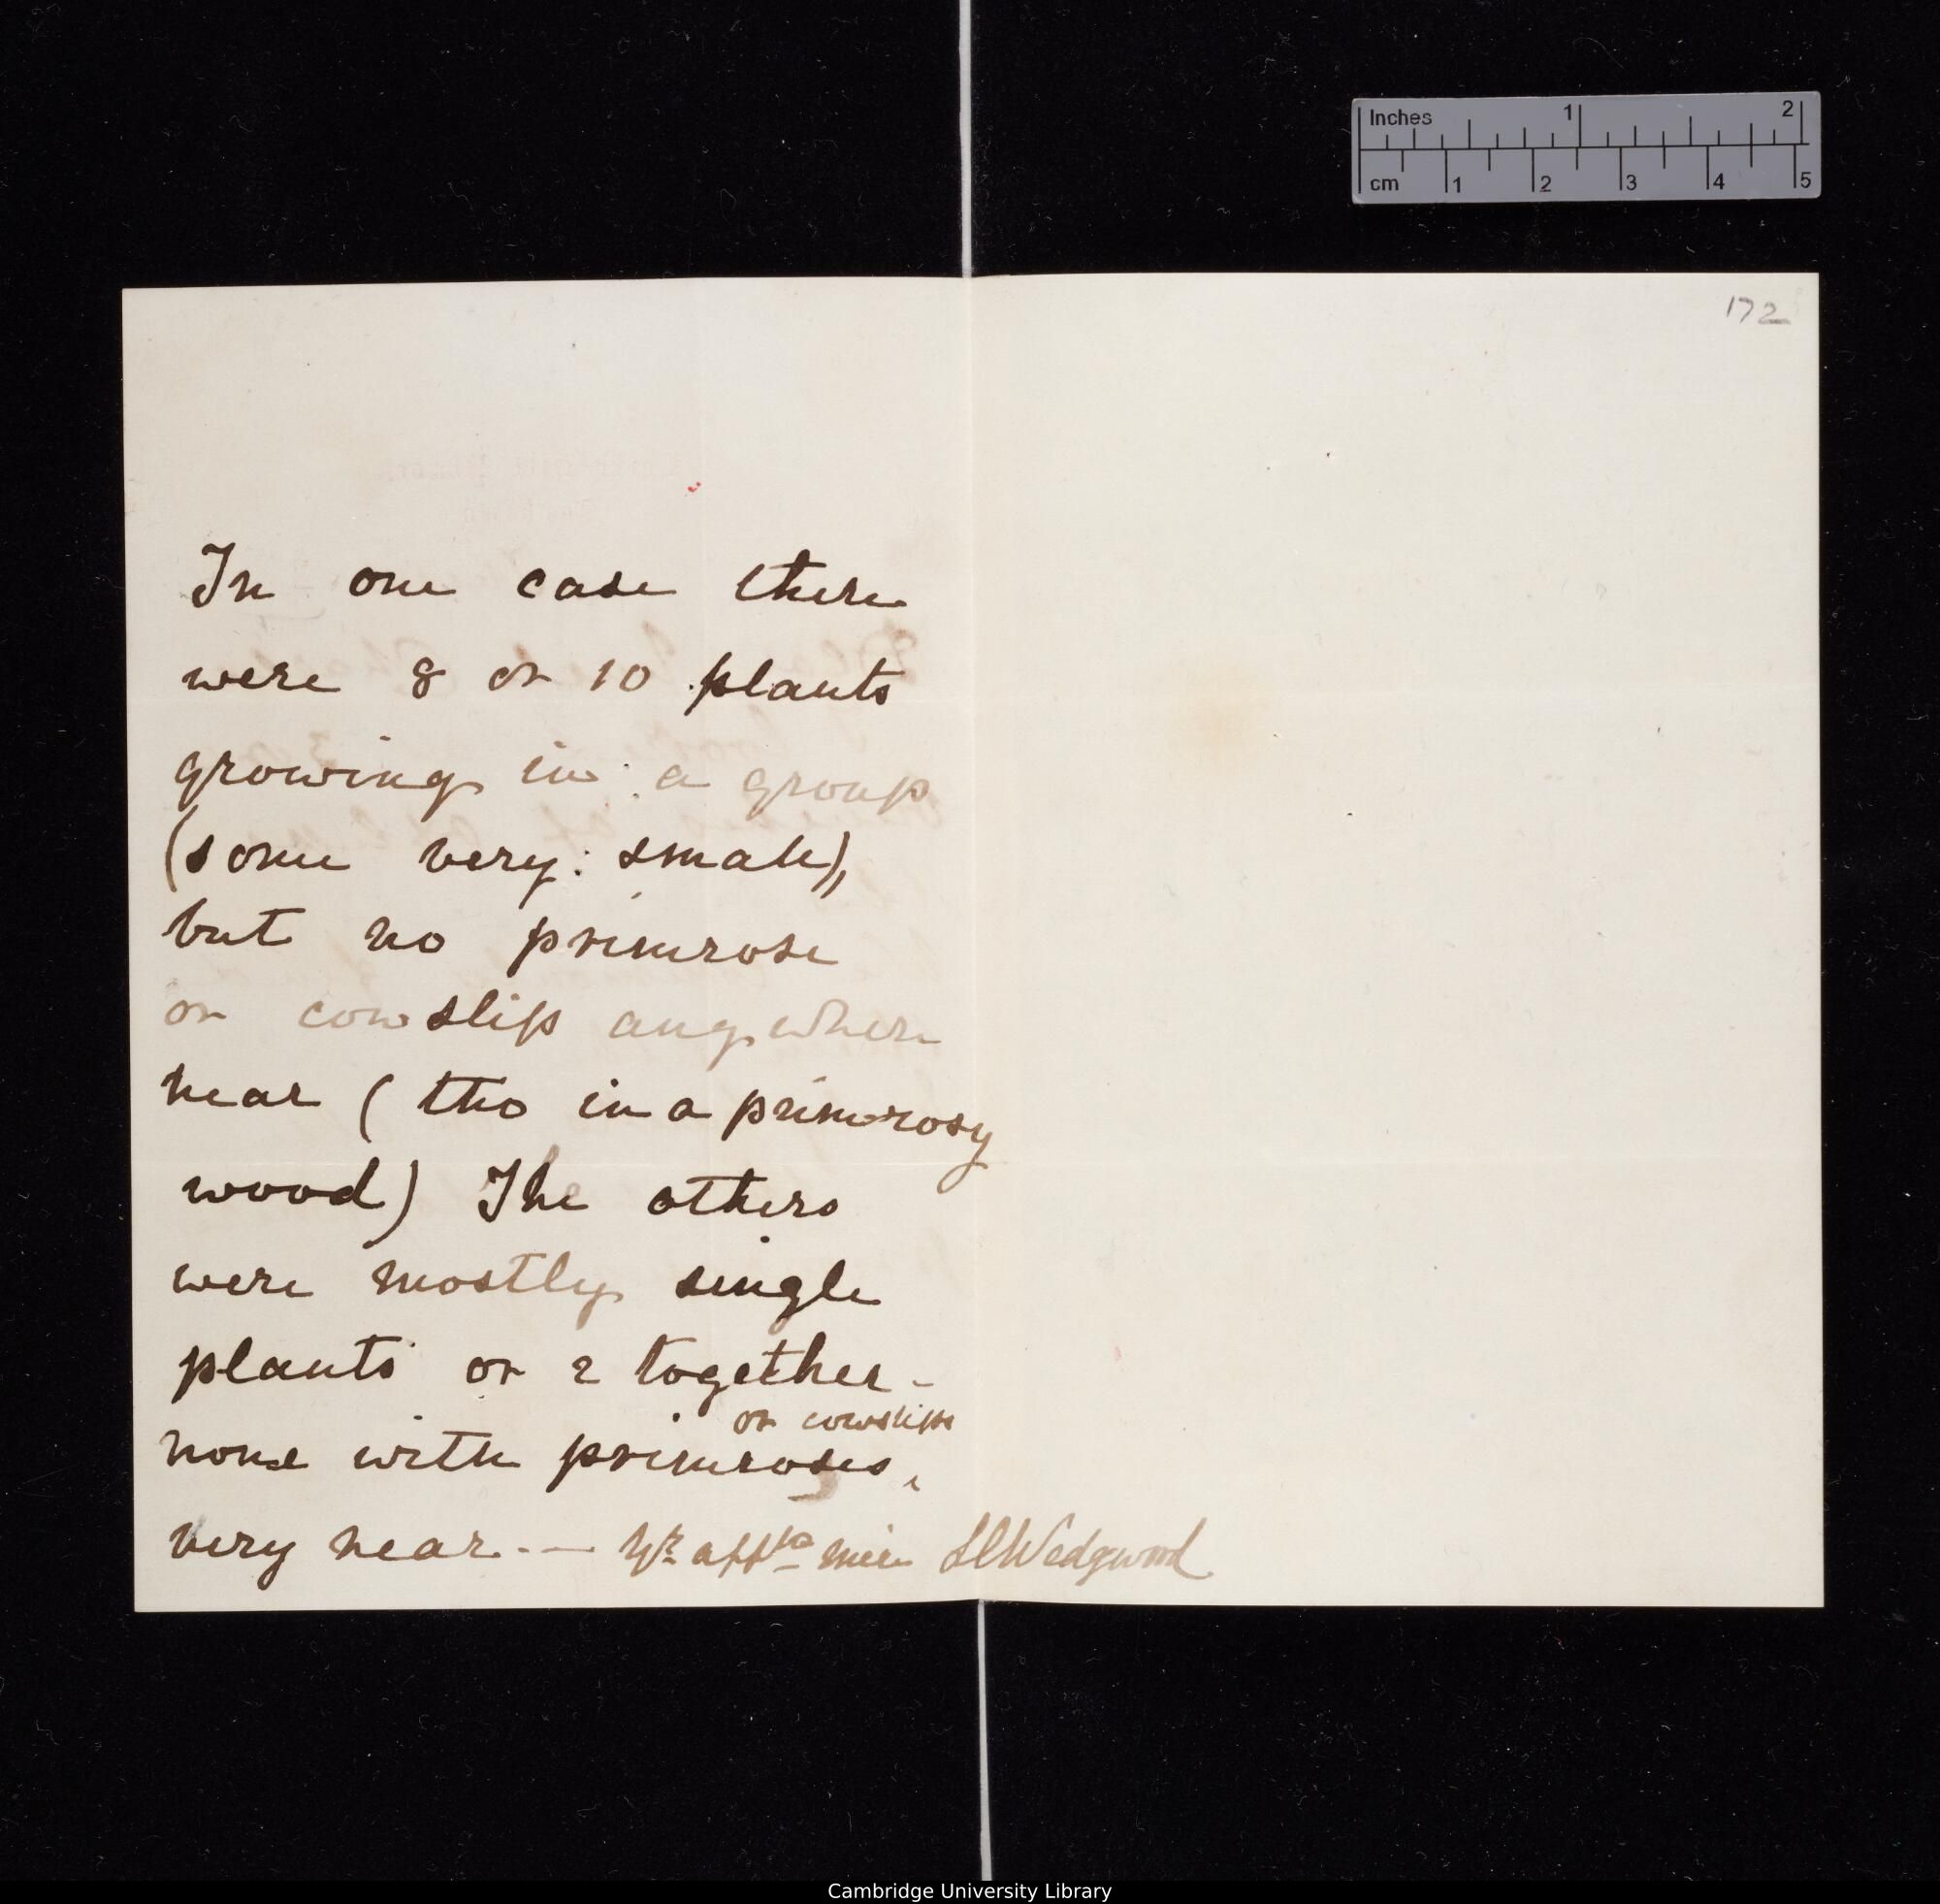 Inches 1 2
cm 1 2 3 4 5
172
In one case there
were 8 or 10 plants
growing in a group
(some very small),
but no primrose
or cowslip anywhere
near (tho in a primrosy
wood) The others
were mostly single
plants or 2 together -
or cowslips
none with primroses,
very near. — Yr. affte niece LCWedgwood
Cambridge University Library